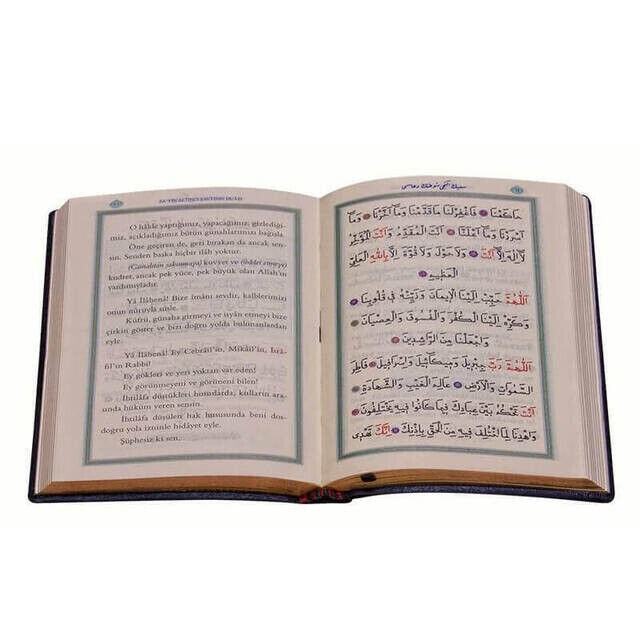 SA'YİN ALTINCI ŞAVTININ DUÂSI
O hâlde yaptığımız, yapacağımız; gizlediği-
miz, açıkladığımız bütün günahlarımızı bağışla.
Öne geçiren de, geri bırakan da ancak sen-
sin. Senden başka hiçbir ilâh yoktur.
(Günahtan sakınmaya) kuvvet ve (ibâdet etmeye)
kudret, ancak pek yüce, pek büyük olan Allah'ın
yardımıyladır.
Yâ İlâhenâ! Bize îmânı sevdir, kalblerimizi
onun nûruyla süsle.
Küfrü, günaha girmeyi ve isyân etmeyi bize
çirkin göster ve bizi doğru yolda bulunanlardan
eyle.
Yâ İlâhenâ! Ey Cebrâîl'in, Mikâîl'in, İsrâ-
fîl'in Rabbi!
Ey gökleri ve yeri yoktan var eden!
Ey görünmeyeni ve görüneni bilen!
İhtilâfa düştükleri husûslarda, kulların ara-
sında hüküm veren sensin.
İhtilâfa düşülen hak husûsunda beni dos-
doğru yola izninle hidâyet eyle.
Şüphesiz ki sen,
حَاكَمْنَا فَاغْفِرْلَنَا مَاقَدَّمْنَا وَمَٓا اَخَّرْنَا وَمَٓا
اَسْرَرْنَا وَمَٓا اَعْلَنَّا اَنْتَ الْمُقَدِّمُ وَاَنْتَ الْمُؤَخِّرُ
لَٓا اِلٰهَ اِلَّٓا اَنْتَ وَلَاحَوْلَ وَلَا قُوَّةَ اِلَّا بِاللّٰهِ الْعَلِيِّ
الْعَظِيمِ
اَللّٰهُمَّ حَبِّبْ اِلَيْنَا الْاِيمَانَ وَزَيِّنْهُ فِي قُلُوبِنَا
وَكَرِّهْ اِلَيْنَا الْكُفْرَ وَالْفُسُوقَ وَالْعِصْيَانَ
وَاجْعَلْنَا مِنَ الرَّاشِدِينَ
اَللّٰهُمَّ رَبَّ جِبْرِيلَ وَمِيكَائِيلَ وَاِسْرَافِيلَ فَاطِرَ
السَّمٰوَاتِ وَالْاَرْضِ عَالِمَ الْغَيْبِ وَالشَّهَادَةِ
اَنْتَ تَحْكُمُ بَيْنَ عِبَادِكَ فِيمَا كَانُوا فِيهِ يَخْتَلِفُونَ
وَاهْدِنَا لِمَا اخْتُلِفَ فِيهِ مِنَ الْحَقِّ بِاِذْنِكَ اِنَّكَ تَهْدِي